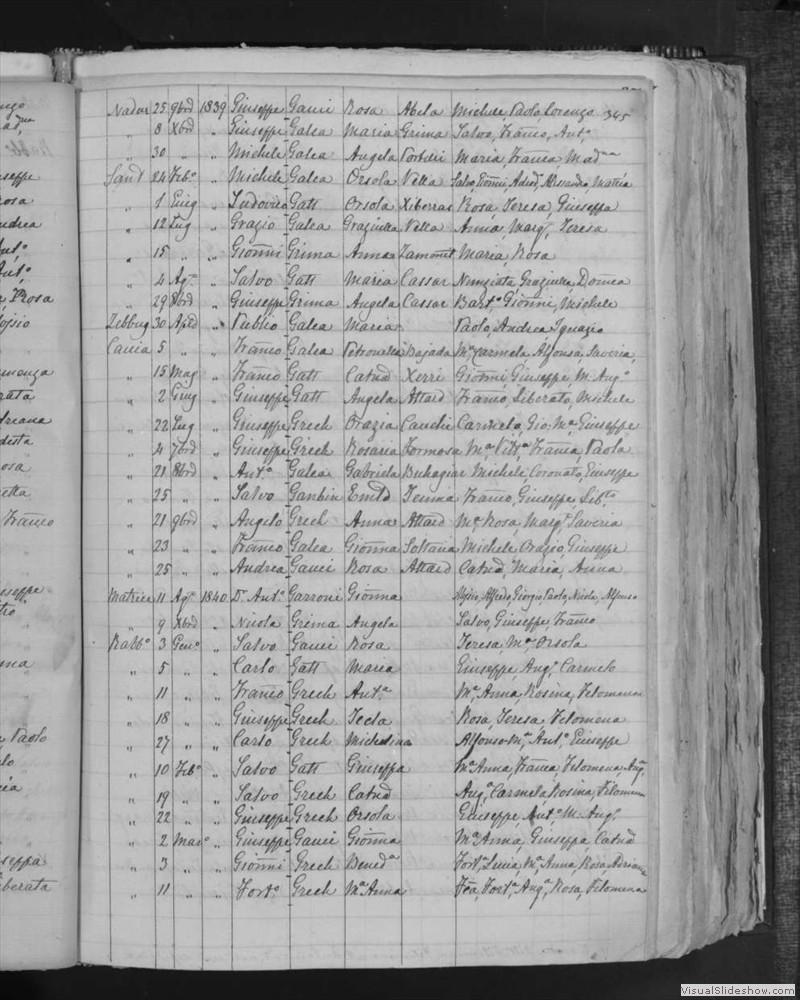 345
Nadur 25 9brd 1839 Giuseppe Gauci Rosa Abela Michele Paolo, Lorenzo
„ 8 Xbrd „ Giuseppe Galea Maria Grima Salvo, Franco, Ant.o
„ 30 „ „ Michele Galea Angela Portelli Maria, Franca, Mad.na
Sand 24 Feb.o „ Michele Galea Orsola Vella Salvo, Gionni, Alessandro, Matteo
„ 1 Giug „ Ludovico Gatt Orsola Xiberras Rosa Teresa, Giuseppa
„ 12 Lug „ Grazio Galea Graziulla Vella Anna, Marg.a Teresa
„ 15 „ „ Gionni Grima Anna Zammit Maria, Rosa
„ 4 Ag.o „ Salvo Gatt Maria Cassar Nunziata, Graziulla, Domca
„ 29 8brd „ Giuseppe Grima Angela Cassar Bart.o Gionni, Michele
Zebbug 30 Apd „ Publio Galea Maria Paolo, Andrea Ignazio
Caccia 5 „ „ Franco Galea Petronella Bajada M.a Carmela, Alfonsa, Saveria,
„ 15 Mag „ Franco Gatt Catnd Xerri Gionni, Giuseppe, M. Ang.o
„ 2 Giug „ Giuseppe Gatt Angela Attard Franco, Liberato, Michele
„ 22 Lug „ Giuseppe Grech Orazia Cauchi Carmelo, Gio: M.a, Giuseppe
„ 4 7brd „ Giuseppe Grech Rosaria Formosa M.a Vitt.a Franca, Paola
„ 21 8brd „ Ant.o Galea Gabriela Buhagiar Michele, Coronato, Giuseppe
„ 25 „ „ Salvo Ganbin Franco, Giuseppe
„ 21 9brd „ Angelo Grech Anna Attard M.a Rosa, Marg.a Saveria
„ 23 „ „ Franco Galea Gionna Soltana Michele, Orazio, Giuseppe
„ 25 „ „ Andrea Gauci Rosa Attard Catnd, Maria, Anna
Matrice 11 Ag.o 1840 Dr. Ant.o Garroni Gionna Alfredo, Giorgio, Paolo, Nicola, Alfonso
„ 9 Xbrd „ Nicola Grima Angela Salvo, Giuseppe, Franco
Rabb.o 3 Gen.o „ Salvo Gauci Rosa Teresa, M.a, Orsola
„ 5 „ Carlo Gatt Maria Giuseppe, Ang.o, Carmelo
„ 11 „ „ Franco Grech Ant.a M.a Anna, Rosina, Filomena
„ 18 „ „ Giuseppe Grech Tecla Rosa, Teresa, Filomena
„ 27 „ „ Carlo Grech Michelina Alfonso-M.a, Ant.o, Giuseppe
„ 10 Feb.o „ Salvo Gatt Giuseppa M.a Anna, Franca, Filomena, Ang.a
„ 19 „ „ Salvo Grech Catnd Ang.a, Carmela, Rosina, Filomena
„ 22 „ „ Giuseppe Grech Orsola Giuseppe, Ant.o M. Ang.o
„ 2 Mar.o „ Giuseppe Gauci Gionna M.a Anna, Giuseppa, Catnd
„ 3 „ „ Gionni Grech Bened.a Fort.a Lucia, M.a Anna, Rosa, Adriana
„ 11 „ „ Fort.o Grech M.a Anna Fca, Fort.a, Ang.a, Rosa, Filomena
VisualSlideshow.com